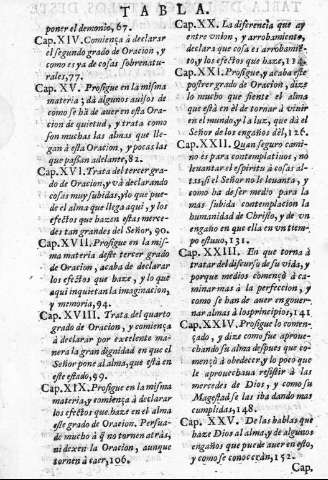 TABLA.
poner el demonio, 67.
Cap. XIV. Comiença à declarar
el segundo grado de Oracion, y
como es ya de cosas sobrenatu-
rales, 77.
Cap. XV. Prosigue en la misma
materia; dà algunos avisos de
como se hà de auer en esta Ora-
cion de quietud, y trata como
son muchas las almas que lle-
gan à esta Oracion, y pocas las
que passan adelante, 82.
Cap. XVI. Trata del tercer gra-
do de Oracion, y và declarando
cosas muy subidas, y lo que pue-
de el alma que llega aqui, y los
efectos que hazen estas merce-
des tan grandes del Señor, 90.
Cap. XVII. Prosigue en la mis-
ma materia deste tercer grado
de Oracion, acaba de declarar
los efectos que haze, y lo que
aqui inquietan la imaginacion,
y memoria, 94.
Cap. XVIII. Trata del quarto
grado de Oracion, y comiença
à declarar por excelente ma-
nera la gran dignidad en que el
Señor pone al alma, que està en
este estado, 99.
Cap. XIX. Prosigue en la misma
materia, y comiença à declarar
los efectos que haze en el alma
este grado de Oracion. Persua-
de mucho à q̃ no tornen atràs,
ni dexen la Oracion, aunque
tornen à caer, 106.
Cap. XX. La diferencia que ay
entre vnion, y arrobamiento,
declara que cosa es arrobamiē-
to, y los efetos que haze, 114.
Cap. XXI. Prosigue, y acaba este
postrer grado de Oracion, y dize
lo mucho que siente el alma
que està en èl de tornar à vivir
en el mundo, y la luz, que dà el
Señor de los engaños dèl, 126.
Cap. XXII. Quan seguro cami-
no es para contemplatiuos, no
leuantar el espiritu à cosas al-
tas, si el Señor no le leuanta, y
como ha de ser medio para la
mas subida contemplacion la
humanidad de Christo, y de vn
engaño en que ella en vn tiem-
po estuuo, 131.
Cap. XXIII. En que torna à
tratar del discurso de su vida, y
porque medios començò à ca-
minar mas à la perfeccion, y
como se han de auer en gouer-
nar almas à los principios, 141
Cap. XXIV. Prosigue lo comen-
çado, y dize como fue aproue-
chando su alma despues que co-
mençò à obedecer, y lo poco que
le aprouechaua resistir à las
mercedes de Dios, y como su
Magestad se las iba dando mas
cumplidas, 148.
Cap. XXV. De las hablas que
haze Dios al alma, y de algunos
engaños que puede auer en esto,
y como se conoceràn, 152
Cap.